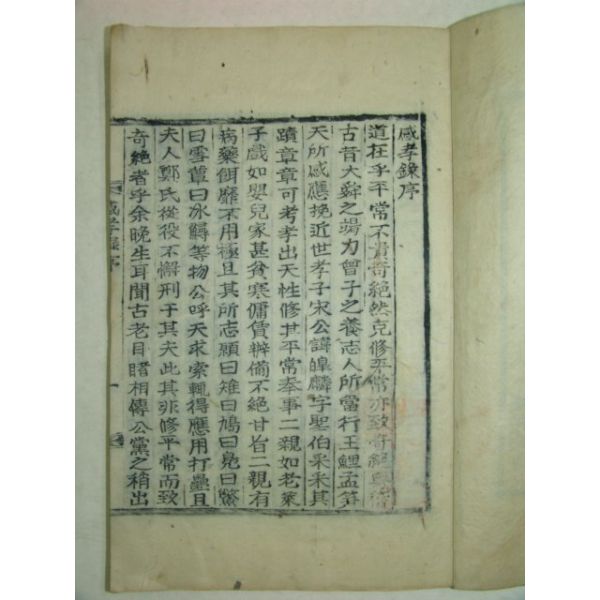 感孝錄序
道在乎平常不貴奇絕然克修平常亦致奇絕
古昔大舜之竭力曾子之養志人所當行王鯉孟笋
天所感應挽近世孝子宋公諱皥麟字聖伯采采其
蹟章章可考孝出天性修其平常奉事二親如老萊
子戲如嬰兒家甚貧寒傭賃辦備不絕甘旨二親有
病藥餌靡不用極且其所志願曰雉曰鳩曰鳧曰鱉
曰雪蕈曰冰鱘等物公呼天求索輒得應用打疊且
夫人鄭氏從役不懈刑于其夫此其非修平常而致
奇絕者乎余晚生耳聞古老目睹相傳公黨之稍出
感孝錄序
一